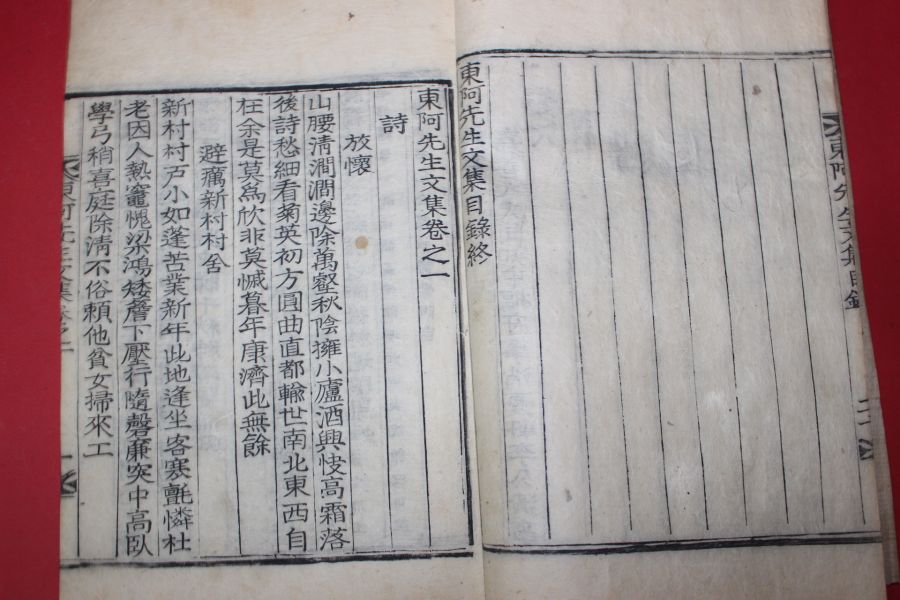 東阿先生文集目錄
東阿先生文集目錄終
東阿先生文集卷之一
詩
放懷
山腰淸澗澗邊除萬壑秋陰擁小廬酒興快高霜落
後詩愁細看菊英初方圓曲直都輸世南北東西自
在余是莫爲欣非莫慽暮年康濟此無餘
避癘新村村舍
新村村戶小如蓬苦業新年此地逢坐客寒氈憐杜
老因人熱竈愧梁鴻矮簷下壓行隨磬廉突中高臥
學弓稍喜庭除淸不俗賴他貧女掃來工
東阿先生文集卷之一
一